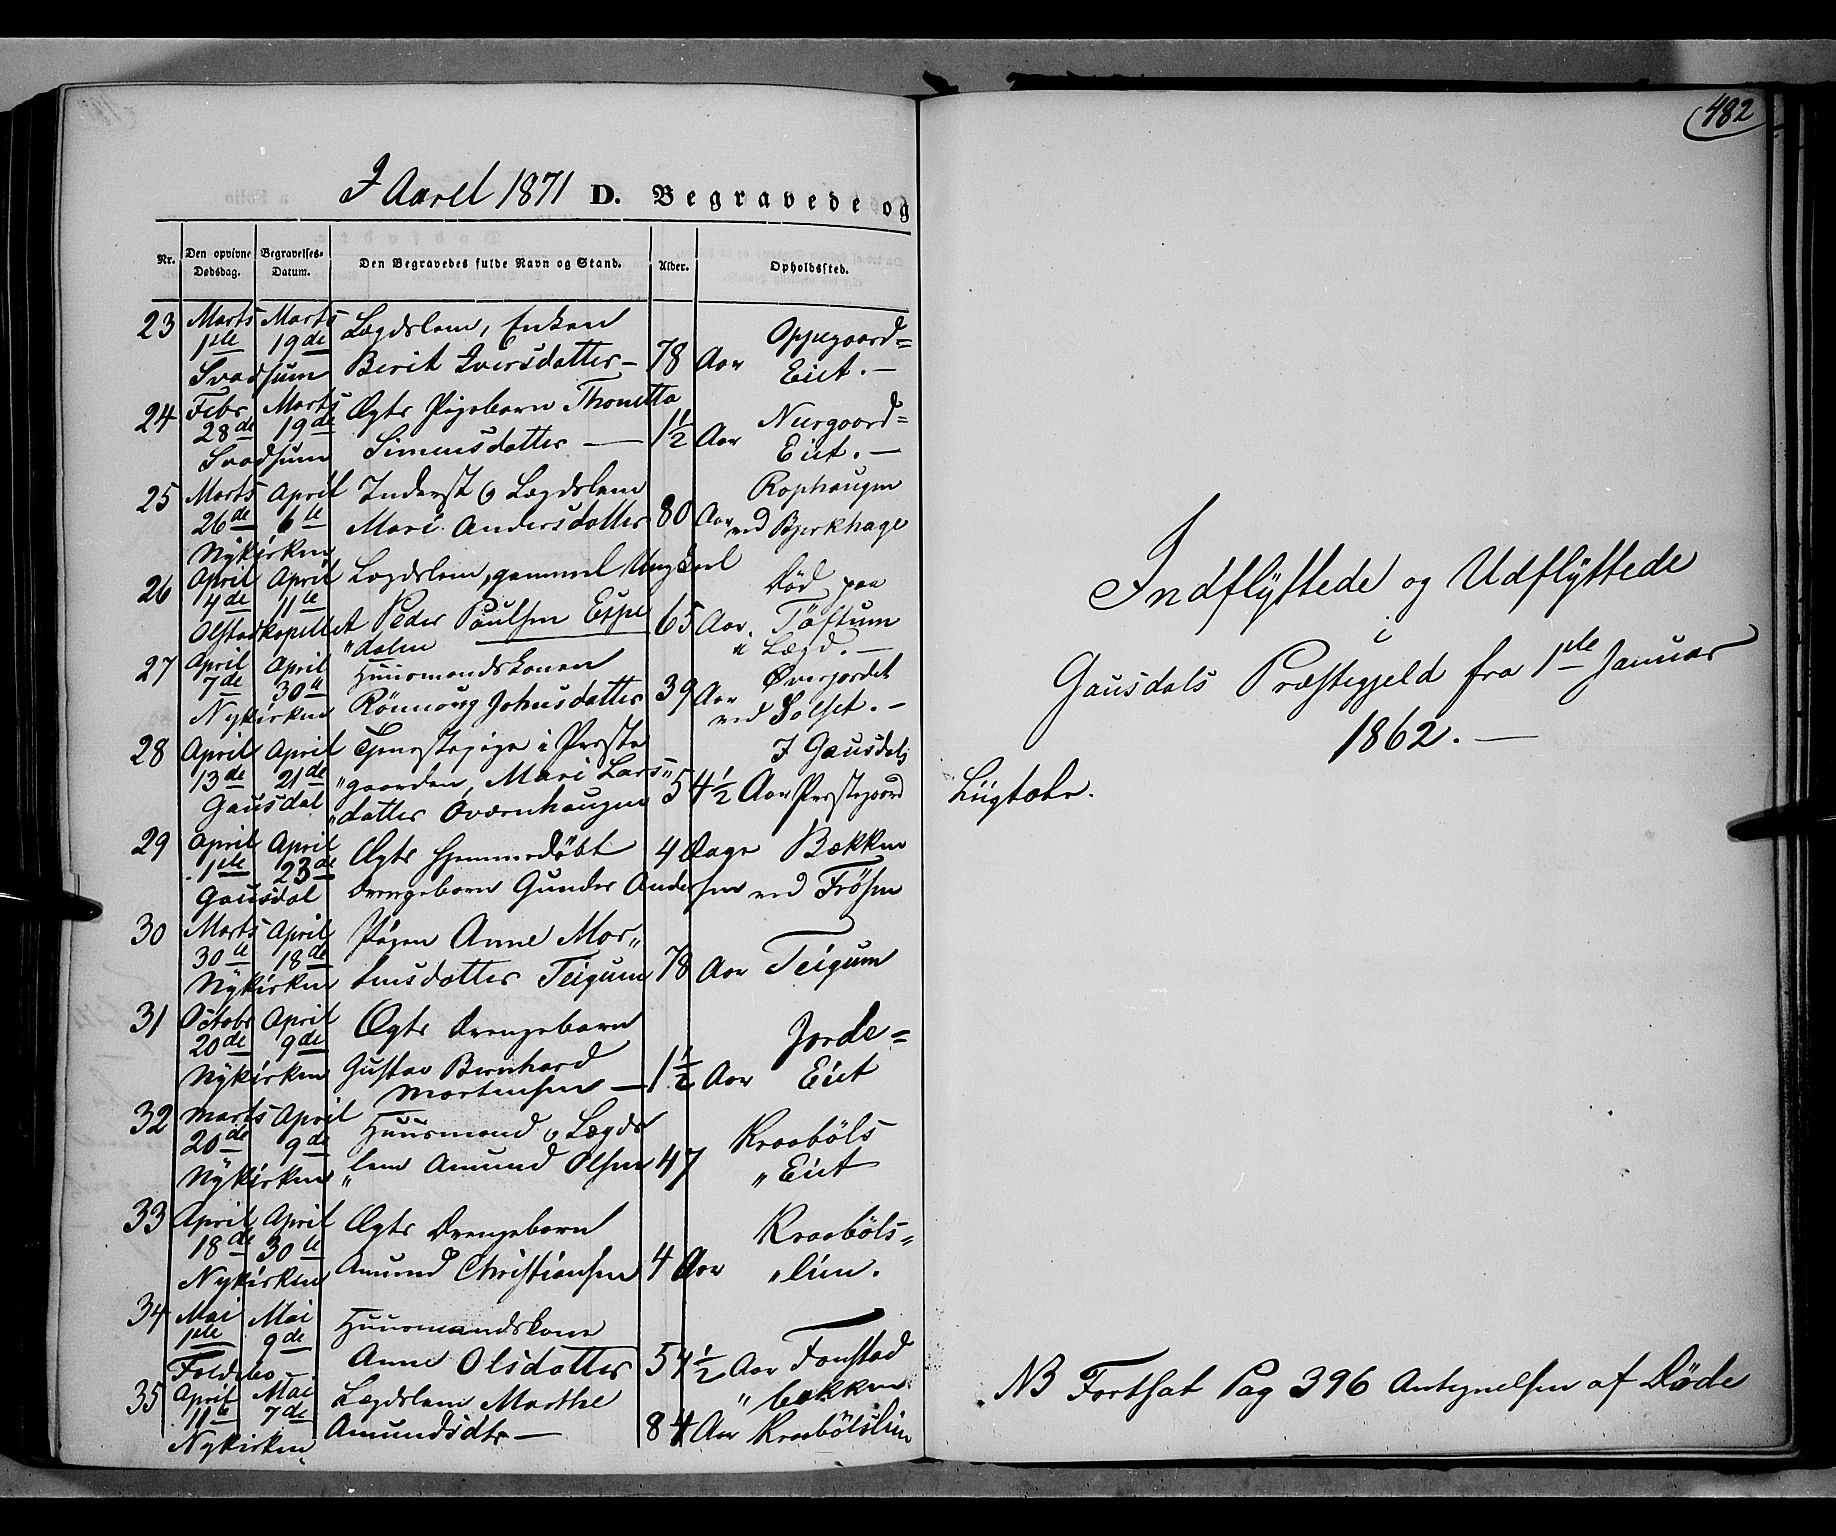 I Aaret 1871 D. Begravede og
Nr. Den opgivne Dødsdag. Begravelses-Datum. Den Begravedes fulde Navn og Stand. Alder. Opholdssted.
23 Marts Marts Lægdslem, Enken Oppegaard=
1ste 19de Berit Iversdatter – 78 Aar Eiet. –
Svadsum
24 Febr Marts Ægte Pigebarn Thonetta Neergaard=
28de 19de Simensdatter — 1½ Aar Eiet. –
Svadsum
25 Marts April Inderst & Lægdslem Rophaugen
26de 6te Mari Andersdatter 80 Aar ved Bjerkhage
Nykirken
26 April April Lægdslem, gammel Ungkarl Død paa
4de 11te Peder Paulsen Espe 65 Aar. Töftum
Olstadkapellet "dalen i Lægd. –
27 April April Huusmandskonen Øverjordet
7de 30te Rönnoug Johnsdatter 39 Aar ved Solset. –
Nykirken
28 April April Tjenestepige i Præste I Gausdals
13de 21de "gaarden, Mari Lars" 54½ Aar Præstegaard
Gausdal "datter Oværnhaugen
29 April April Ægte hjemmedöbt 4 Dage Bækken
1ste 23de Drengebarn Gunder Andersen ved Frösen
Gausdal
30 Marts April Pigen Anne Mor"
30te 18de tensdatter Teigum 78 Aar Teigum
Nykirken
31 Octobr April Ægte Drengebarn Jorde=
20de 9de Gustav Bernhard 1½ Aar Eiet
Nykirken Mortensen —
32 Marts April Huusmand & Lægds Kraaböls
20de 9de "lem Amund Olsen 47 "Eiet
Nykirken
33 April April Ægte Drengebarn Kraaböls"
18de 30te Amund Christiansen 4 Aar "lien.
Nykirken
34 Mai Mai Huusmandskone
1ste 9de Anne Olsdatter 54½ Aar Fonstad
Foldebo – "bakken
35 April Mai Lægdslem Marthe
11te 7de Amundsdtr — 84 Aar Kraabölslien
Nykirken
482
Indflyttede og Udflyttede
i
Gausdals Præstegjeld fra 1ste Januar
1862. —
NB Fortsat Pag 396 Antegnelsen af Døde